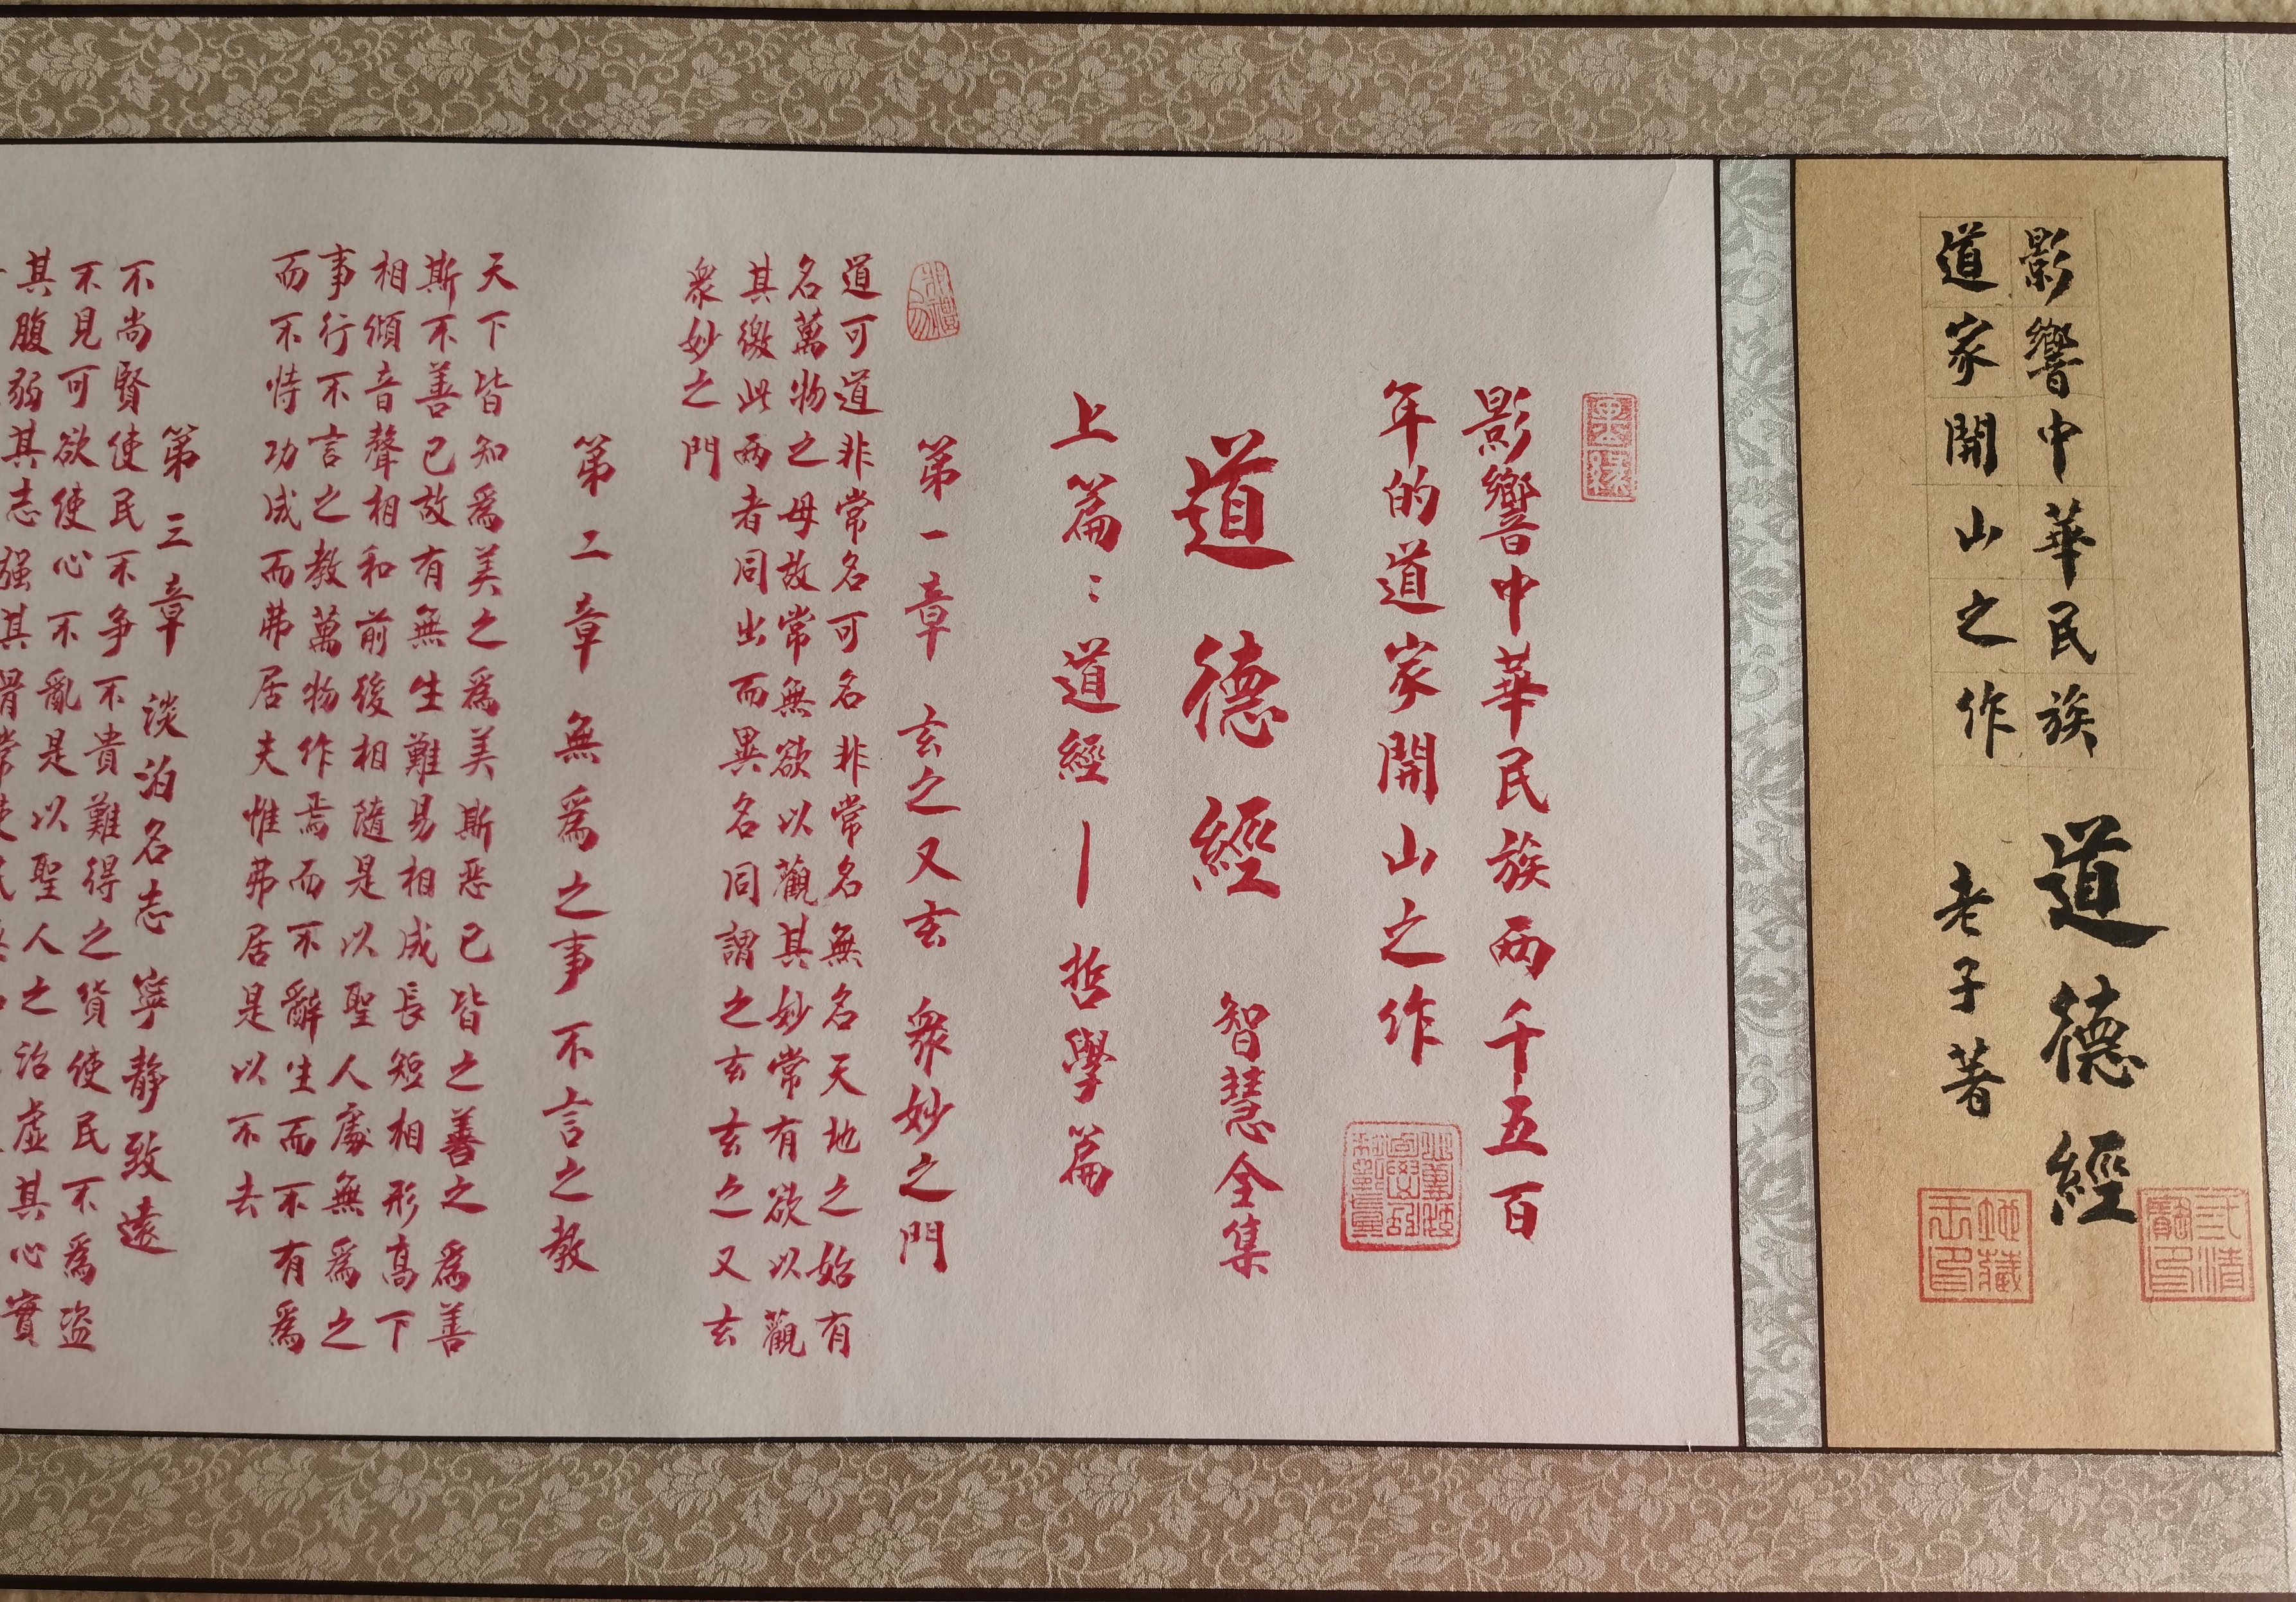 影響中華民族
道家開山之作
道德經
老子著
影響中華民族兩千五百
年的道家開山之作
道德經 智慧全集
上篇：道經—哲學篇
第一章 玄之又玄 衆妙之門
道可道非常名可名非常名無名天地之始有
名萬物之母故常無欲以觀其妙常有欲以觀
其徼此兩者同出而異名同謂之玄玄之又玄
衆妙之門
第二章 無爲之事不言之教
天下皆知爲美之爲美斯恶已皆之善之爲善
斯不善已故有無生難易相成長短相形高下
相傾音聲相和前後相隨是以聖人處無爲之
事行不言之教萬物作焉而不辭生而不有爲
而不恃功成而弗居夫惟弗居是以不去
第三章 淡泊名志 寧静致遠
不尚賢使民不争不貴難得之貨使民不爲盜
不見可欲使心不亂是以聖人之治虛其心實
其腹弱其志强其骨常使民無